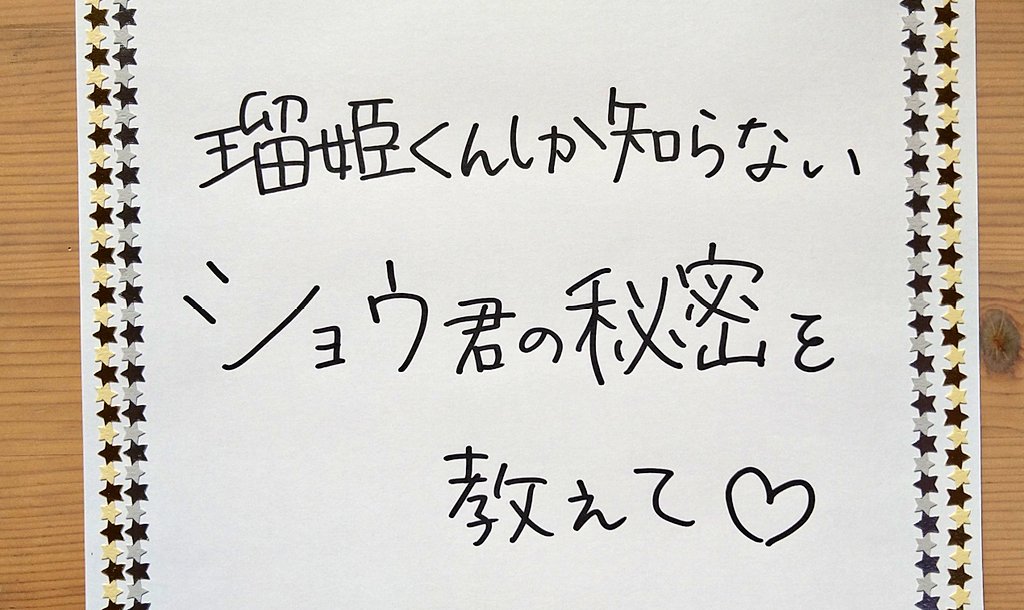 瑠姫くんしか知らない
ショウ君の秘密を
教えて♡